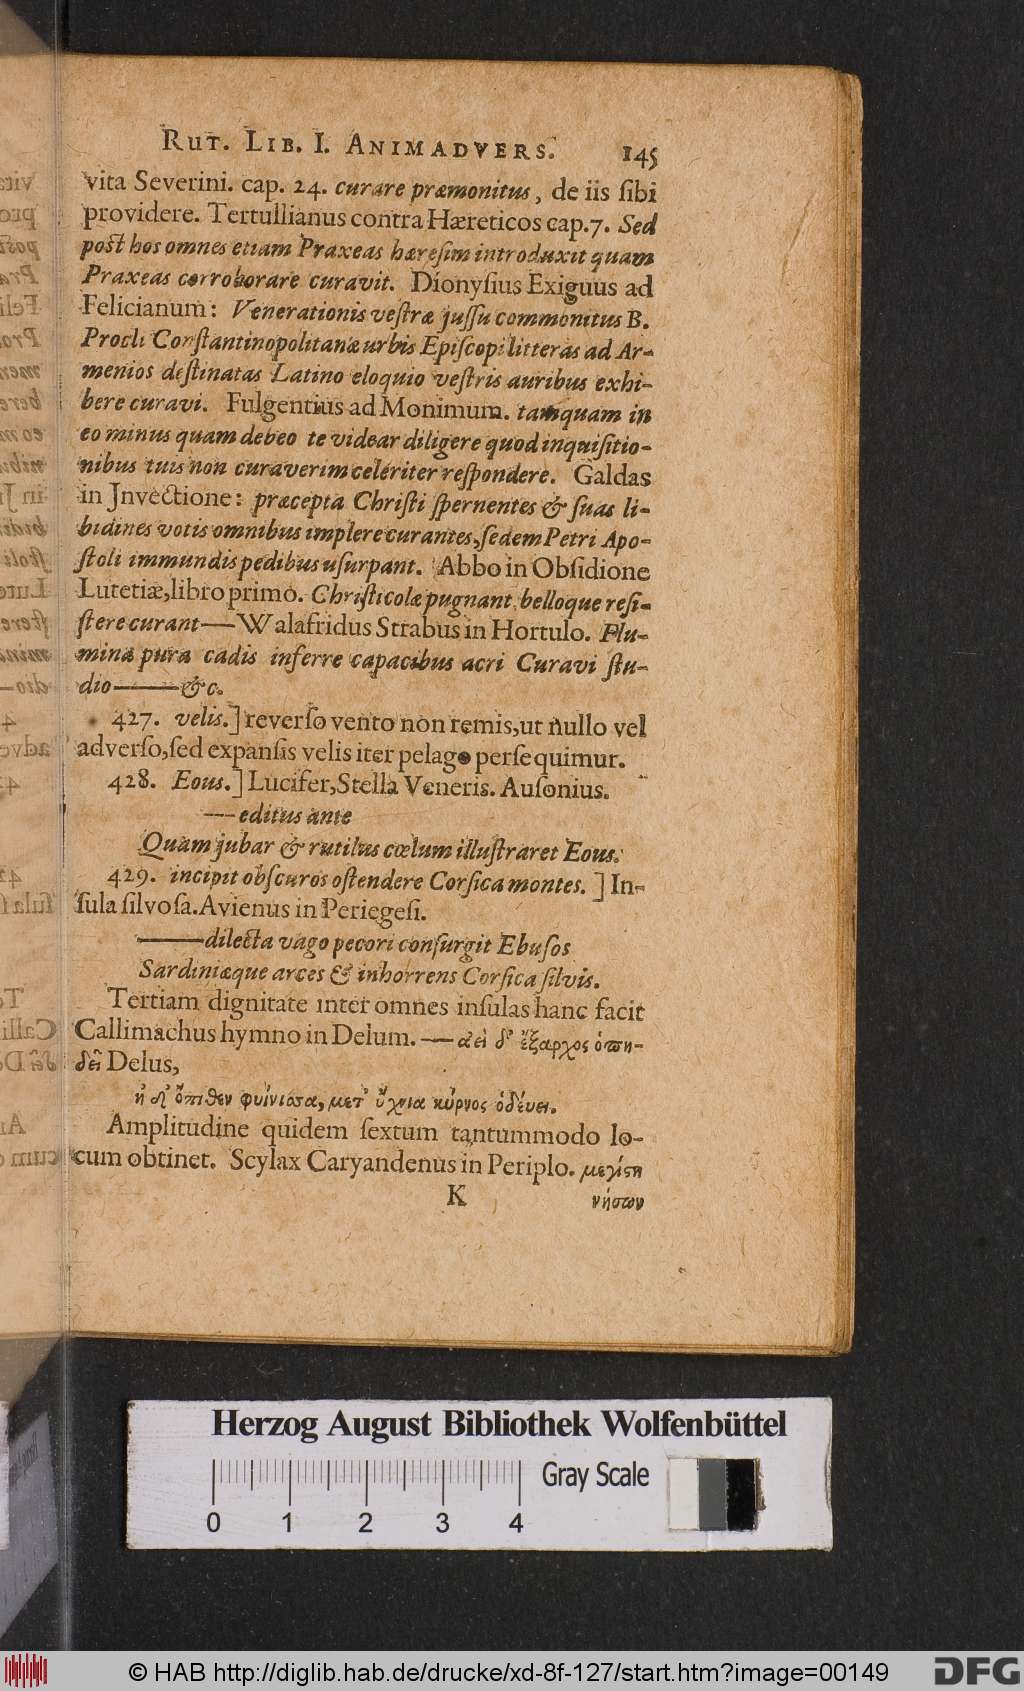 RUT. LIB. I. ANIMADVERS. 145
vita Severini. cap. 24. curare præmonitus, de iis ſibi
providere. Tertullianus contra Hæreticos cap. 7. Sed
poſt hos omnes etiam Praxeas hæreſim introduxit quam
Praxeas corroborare curavit. Dionyſius Exiguus ad
Felicianum: Venerationis veſtræ juſſu commonitus B.
Procli Conſtantinopolitanæ urbis Epiſcopi litteras ad Ar-
menios deſtinatas Latino eloquio veſtris auribus exhi-
bere curavi. Fulgentius ad Monimum. tamquam in
eo minus quam debeo te videar diligere quod inquiſitio-
nibus tuis non curaverim celeriter reſpondere. Galdas
in Jnvectione: præcepta Chriſti ſpernentes & ſuas li-
bidines votis omnibus implere curantes, ſedem Petri Apo-
ſtoli immundis pedibus uſurpant. Abbo in Obſidione
Lutetiæ, libro primo. Chriſticolæ pugnant, belloque reſi-
ſtere curant — Walafridus Strabus in Hortulo. Flu-
mina pura cadis inferre capacibus acri Curavi ſtu-
dio — &c.
427. velis.] reverſo vento non remis, ut nullo vel
adverſo, ſed expanſis velis iter pelago perſequimur.
428. Eous.] Lucifer, Stella Veneris. Auſonius.
— editus ante
Quam jubar & rutilus cœlum illuſtraret Eous.
429. incipit obſcuros oſtendere Corſica montes.] In-
ſula ſilvoſa. Avienus in Periegeſi.
— dilecta vago pecori conſurgit Ebuſos
Sardiniæque arces & inhorrens Corſica ſilvis.
Tertiam dignitate inter omnes inſulas hanc facit
Callimachus hymno in Delum. — ἀεὶ δ' ἔξαρχος ὁπη-
δεῖ Delus,
ἡ δ' ὄπιθεν φοίνισσα, μετ' ἴχνια κύρνος ὁδεύει.
Amplitudine quidem ſextum tantummodo lo-
cum obtinet. Scylax Caryandenus in Periplo. μεγίϛη
K νήσων
Herzog August Bibliothek Wolfenbüttel
Gray Scale
0 1 2 3 4
© HAB http://diglib.hab.de/drucke/xd-8f-127/start.htm?image=00149
DFG